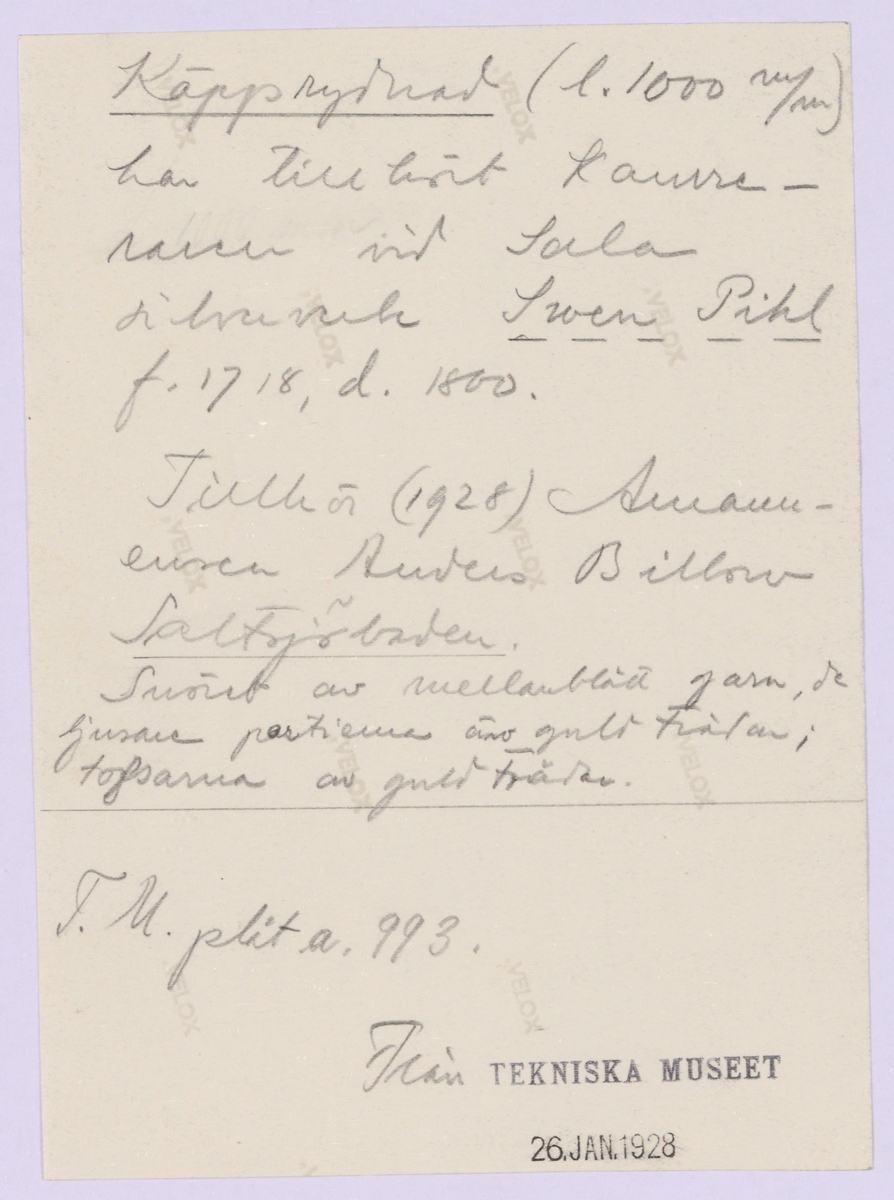 Käpprydnad (l. 1000 m/m)
har tillhört Kamre-
raren vid Sala
silververk Swen Pihl
f. 1718, d. 1800.
Tillhör (1928) Amanu-
ensen Anders Billow
Saltsjöbaden.
Snöret av mellanblått garn, de
ljusare partierna av guldtrådar;
tofsarna av guldtrådar.
T. M. plåt a. 993.
Från TEKNISKA MUSEET
26.JAN.1928
VELOX
VELOX
VELOX
VELOX
VELOX
VELOX
VELOX
VELOX
VELOX
VELOX